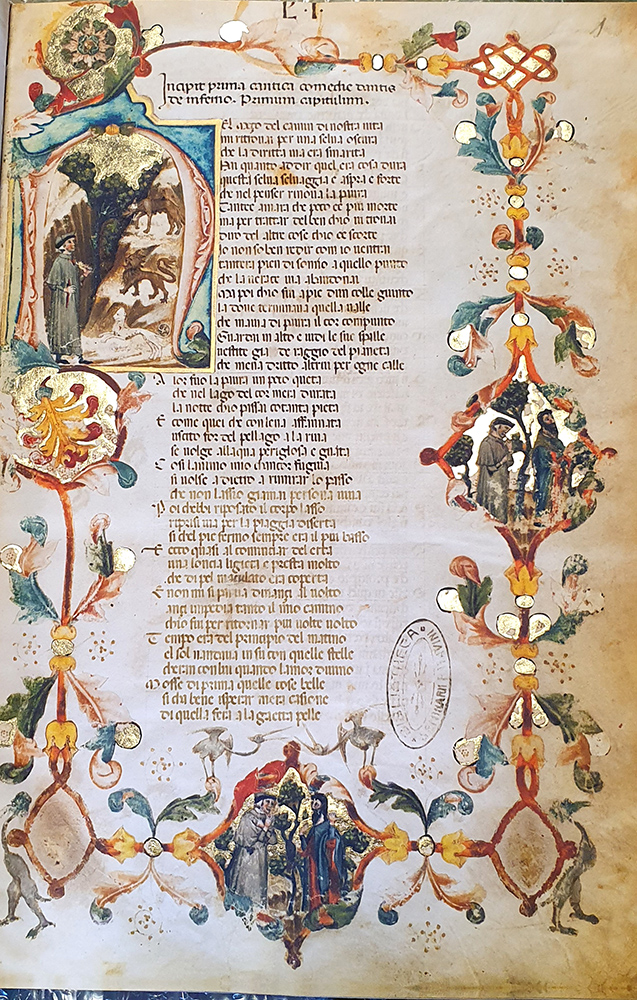 Incipit prima cantica comedie dantis
de inferno. Primum capitulum.
Nel mezo del camin di nostra uita
mi ritrouai per una selua oscura
che la diritta uia era smarita
Ai quanto a dir quel era cosa dura
questa selua seluaggia e aspra e forte
che nel penser rinoua la paura
Tante amara che poco e piu morte
ma per trattar del ben chio ui trouai
diro del altre cose chio ce scorte
Io non so ben redir com io uentrai
tantera pien di sonno a quello punto
che la uerace uia abandonai
Ma poi chio fui a pie dun colle giunto
la doue terminaua quella ualle
che mauia di paura il cor compunto
Guardai in alto e uidi le sue spalle
uestite gia de raggio del pianeta
che mena dritto altrui per ogne calle
Alor fuo la paura un poco queta
che nel lago del cor mera durata
la notte chio passai cotanta pieta
E come quei che con lena affannata
uscito for del pellago a la riua
se uolge allaqua perigliosa e guata
Cosi lanimo mio chancor fugiua
si uolse adietro a rimirar lo passo
che non lasso giamai persona uiua
Poi chelbi riposato il corpo lasso
ripresi uia per la piaggia diserta
si chel pie fermo sempre era il piu basso
Et ecco quasi al cominciar del erta
una loncia ligiera e presta molto
che di pel maculato era coperta
E non mi si partia dinanci al uolto
anci impedia tanto il mio camino
chio fui per ritornar piu uolte uolto
Tempo era del principio del matino
el sol montaua in su con quelle stelle
cheran con lui quando lamor diuino
Mosse di prima quelle cose belle
si cha bene isperar mera casione
di quella fera a la gaetta pelle